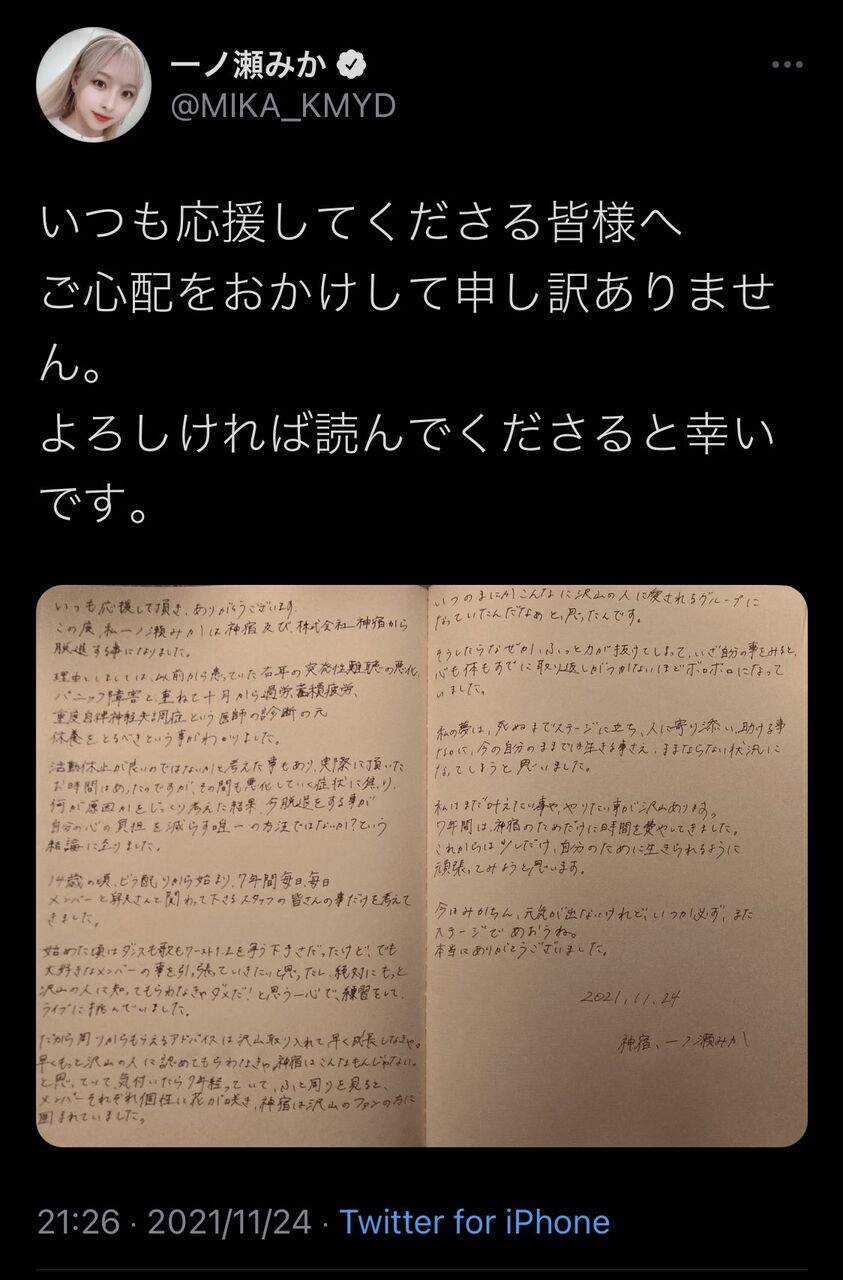 一ノ瀬みか
@MIKA_KMYD
いつも応援してくださる皆様へ
ご心配をおかけして申し訳ありませ
ん。
よろしければ読んでくださると幸い
です。
いつも応援して頂き、ありがとうございます。
この度、私一ノ瀬みかは神宿及び、株式会社神宿から
脱退する事になりました。
理由としましては、以前から患っていた右耳の突発性難聴の悪化、
パニック障害と、重ねて十月から過労、蓄積疲労、
重度自律神経失調症という医師の診断の元
休養をとるべきという事がわかりました。
活動休止が良いのではないかと考えた事もあり、実際に頂いた
お時間はあったのですが、その間も悪化していく症状に焦り、
何が原因かをじっくり考えた結果、今脱退をする事が
自分の心の負担を減らす唯一の方法ではないか?という
結論に至りました。
14歳の頃、ビラ配りから始まり、7年間毎日、毎日
メンバーと北川さんと関わって下さるスタッフの皆さんの事だけを考えて
きました。
始めた頃はダンスも歌もワースト1.2を争う下手さだったけど、でも
大好きなメンバーの事を引っ張っていきたいと思ったし、絶対にもっと
沢山の人に知ってもらわなきゃダメだ!と思う一心で、練習をして、
ライブに挑んでいました。
だから周りからもらえるアドバイスは沢山取り入れて早く成長しなきゃ。
早くもっと沢山の人に認めてもらわなきゃ。神宿はこんなもんじゃない。
と思っていて、気付いたら7年経っていて、ふと周りを見ると、
メンバーそれぞれ個性に花が咲き、神宿は沢山のファンの方に
囲まれていました。
いつのまにかこんなに沢山の人に愛されるグループに
なっていたんだなぁと、思ったんです。
そうしたらなぜか、ふっと力が抜けてしまって、いざ自分の事をみると、
心も体もすでに取り返しがつかないほどボロボロになって
いました。
私の夢は、死ぬまでステージに立ち、人に寄り添い、助ける事
なのに、今の自分のままでは生きる事さえ、ままならない状況に
なってしまうと思いました。
私はまだ叶えたい事や、やりたい事が沢山あります。
7年間は、神宿のためだけに時間を費やしてきました。
これからは少しだけ、自分のために生きられるように
頑張ってみようと思います。
今はみかちん、元気が出ないけれど、いつか必ず、また
ステージであおうね。
本当にありがとうございました。
2021.11.24
神宿、一ノ瀬みか
21:26 · 2021/11/24 · Twitter for iPhone